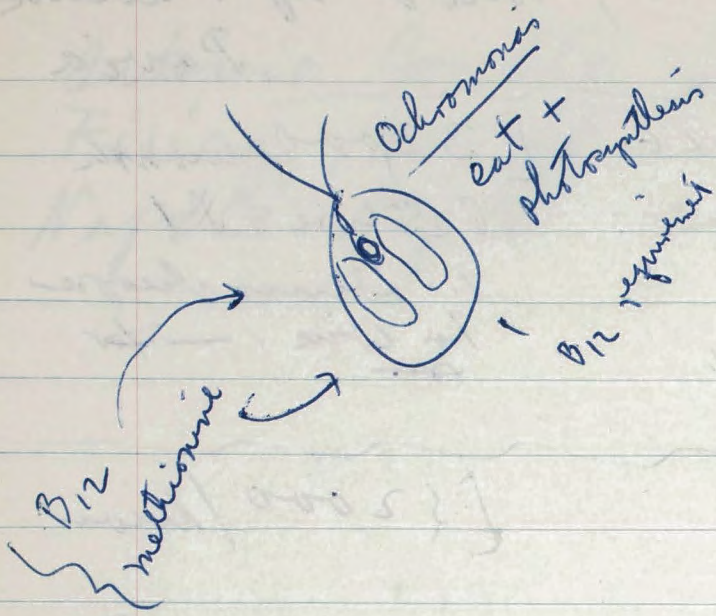 Ochromonas
eat +
photosynthesis
B12 requirement
B12
methionine